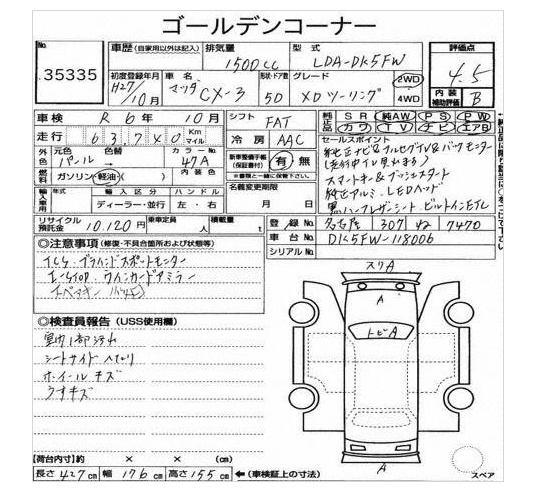 ゴールデンコーナー
No. 35335
車歴 (自家用以外は記入) 排気量 1500cc 型式 LDA-DK5FW 評価点 4.5
初度登録年月 H27/10月 車名 マツダ CX-3 形状・ドア数 5D グレード XDツーリング 2WD 4WD 内装補助評価 B
車検 R 6年 10月 シフト FAT 純正品 SR 純AW PS PW
走行 63,740 Km マイル 冷房 AAC カワ TV ナビ エアB
外色 元色 パール 色替 → カラーNo. 47A 新車整備手帳(保証書付) 有 無
セールスポイント
純正ナビ&フルセグTV&バックモンター
(走行中TV見れます)
スマートキー&プッシュスタート
純正アルミ、LEDヘッド
黒ハーフレザーシート ビルトインETC
燃料 ガソリン・軽油・( ) 内装色 ※書類と一緒に保管して下さい
輸入車 年 輸入区分 ハンドル 名義変更期限
ディーラー・並行 左・右 月 日
リサイクル預託金 10,120円 乗車定員 人 積載量 t 登録 名古屋 307 ね 7470
車台No. DK5FW-118006
シリアルNo.
◎注意事項 (修復・不具合箇所および状態等)
TCS ブラインドスポットモニター
i-STOP ウィンカードアミラー
◎検査員報告 (USS使用欄)
室内1部汚れ
シートサイドヘタリ
ホイールキズ
うすキズ
スクリA
A
トビA
A
スペア
【荷台内寸】約 × × (cm)
長さ 427 cm 幅 176 cm 高さ 155 cm ←(車検証上の寸法)